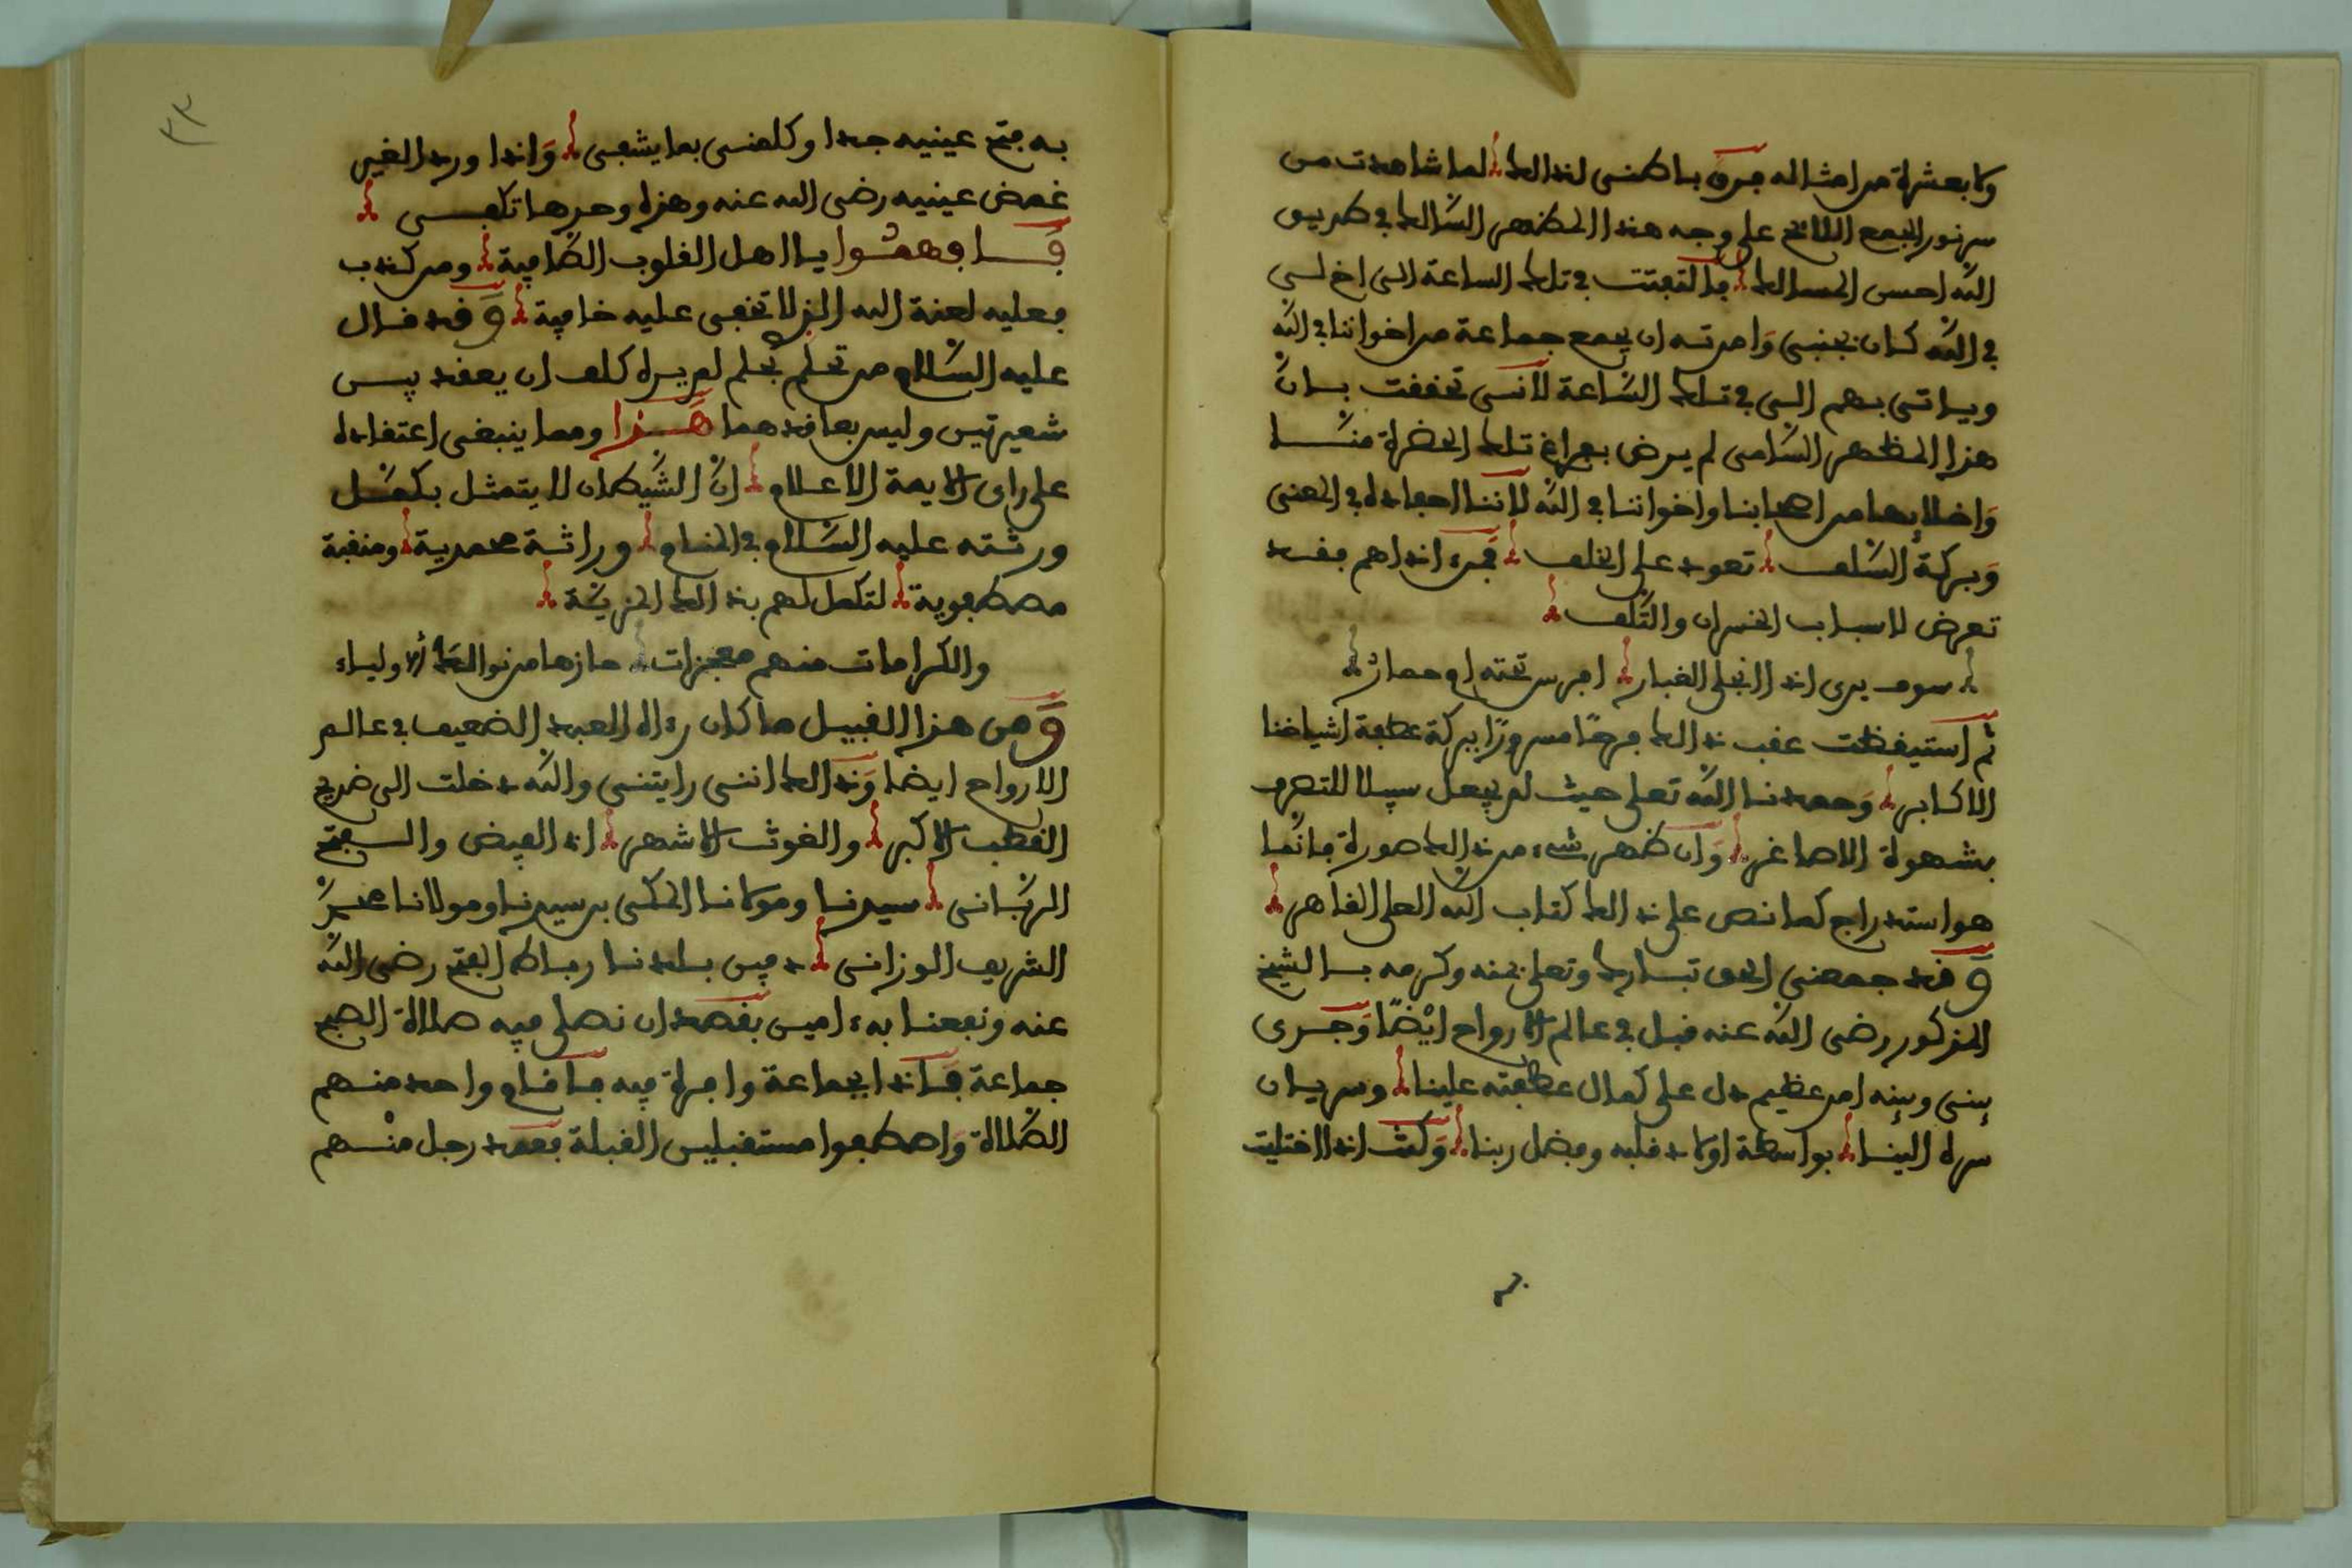 ولا بعشرة من امثاله فرق باطني لذلك لما شاهدت من
سر نور الجمع اللائح على وجه هذا المظهر السالك في طريق
الله احسن المسالك فالتفتت في تلك الساعة الى اخ لي
في الله كان بجنبي وامرته ان يجمع جماعة من اخواننا في الله
وياتي بهم الي في تلك الساعة لانني تحققت بان
هذا المظهر السامي لم يرض بفراغ تلك الحضرة منا
واخلايها من اصحابنا واخواننا في الله لاننا احفاده في المعنى
وبركة السلف تعود على الخلف فمن اذاهم فقد
تعرض لاسباب الخسران والتلف
سوف يرى اذا انجلى الغبار افرس تحته ام حمار
ثم استيقظت عقب ذلك فرحا مسرورا ببركة عطفة اشياخنا
الاكابر وحمدنا الله تعلى حيث لم يجعل سبيلا للتصرف
بشهوة الاصاغر وان ظهر شيء من ذلك صورة فانما
هو استدراج كما نص على ذلك كتاب الله العلي القاهر
وقد جمعني الحق تبارك وتعلى بمنه وكرمه بالشيخ
المذكور رضي الله عنه قبل في عالم الارواح ايضا وجرى
بيني وبينه امر عظيم دل على كمال عطفته علينا وسريان
سره الينا بواسطة اولاد قلبه وفضل ربنا وكنت اذا اختليت
به فتح عينيه جدا وكلمني بما يشفي واذا ورد الغير
غمض عينيه رضي الله عنه وهذه وحدها تكفي
فافهموا يا اهل القلوب الصافية ومن كذب
فعليه لعنة الله الذي لا تخفى عليه خافية وقد قال
عليه السلام من تحلم بحلم لم يره كلف ان يعقد بين
شعيرتين وليس بعاقدهما هذا ومما ينبغي اعتقاده
على راي الايمة الاعلام ان الشيطان لا يتمثل بكمل
ورثته عليه السلام في المنام وراثة محمدية ومنقبة
مصطفوية لتكمل لهم بذلك المزية
والكرامات منهم معجزات حازها من نوالك الاولياء
ومن هذا القبيل ما كان رءاه العبد الضعيف في عالم
الارواح ايضا وذلك انني رايتني والله دخلت الى ضريح
القطب الاكبر والغوث الاشهر ذا الفيض والفتح
الرباني سيدنا ومولانا المكي بن سيدنا ومولانا محمد
الشريف الوزاني دفين بلدنا رباط الفتح رضي الله
عنه ونفعنا به ءامين بقصد ان نصلي فيه صلاة الصبح
جماعة فاذا بجماعة وافرة فيه فاقام واحد منهم
الصلاة واصطفوا مستقبلين القبلة فعمد رجل منهم
٣٣